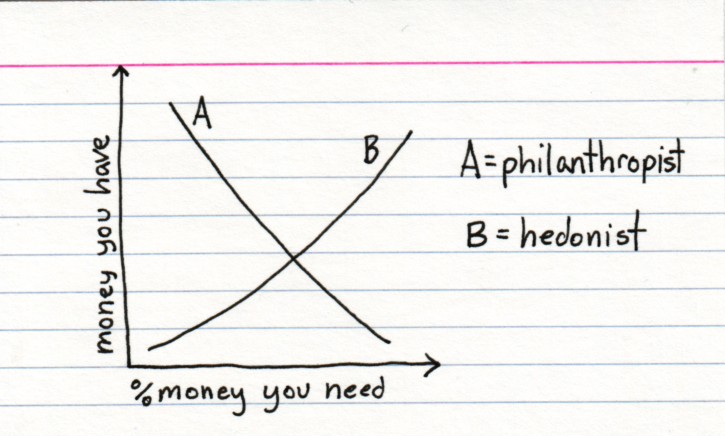 A
B
money you have
% money you need
A = philanthropist
B = hedonist